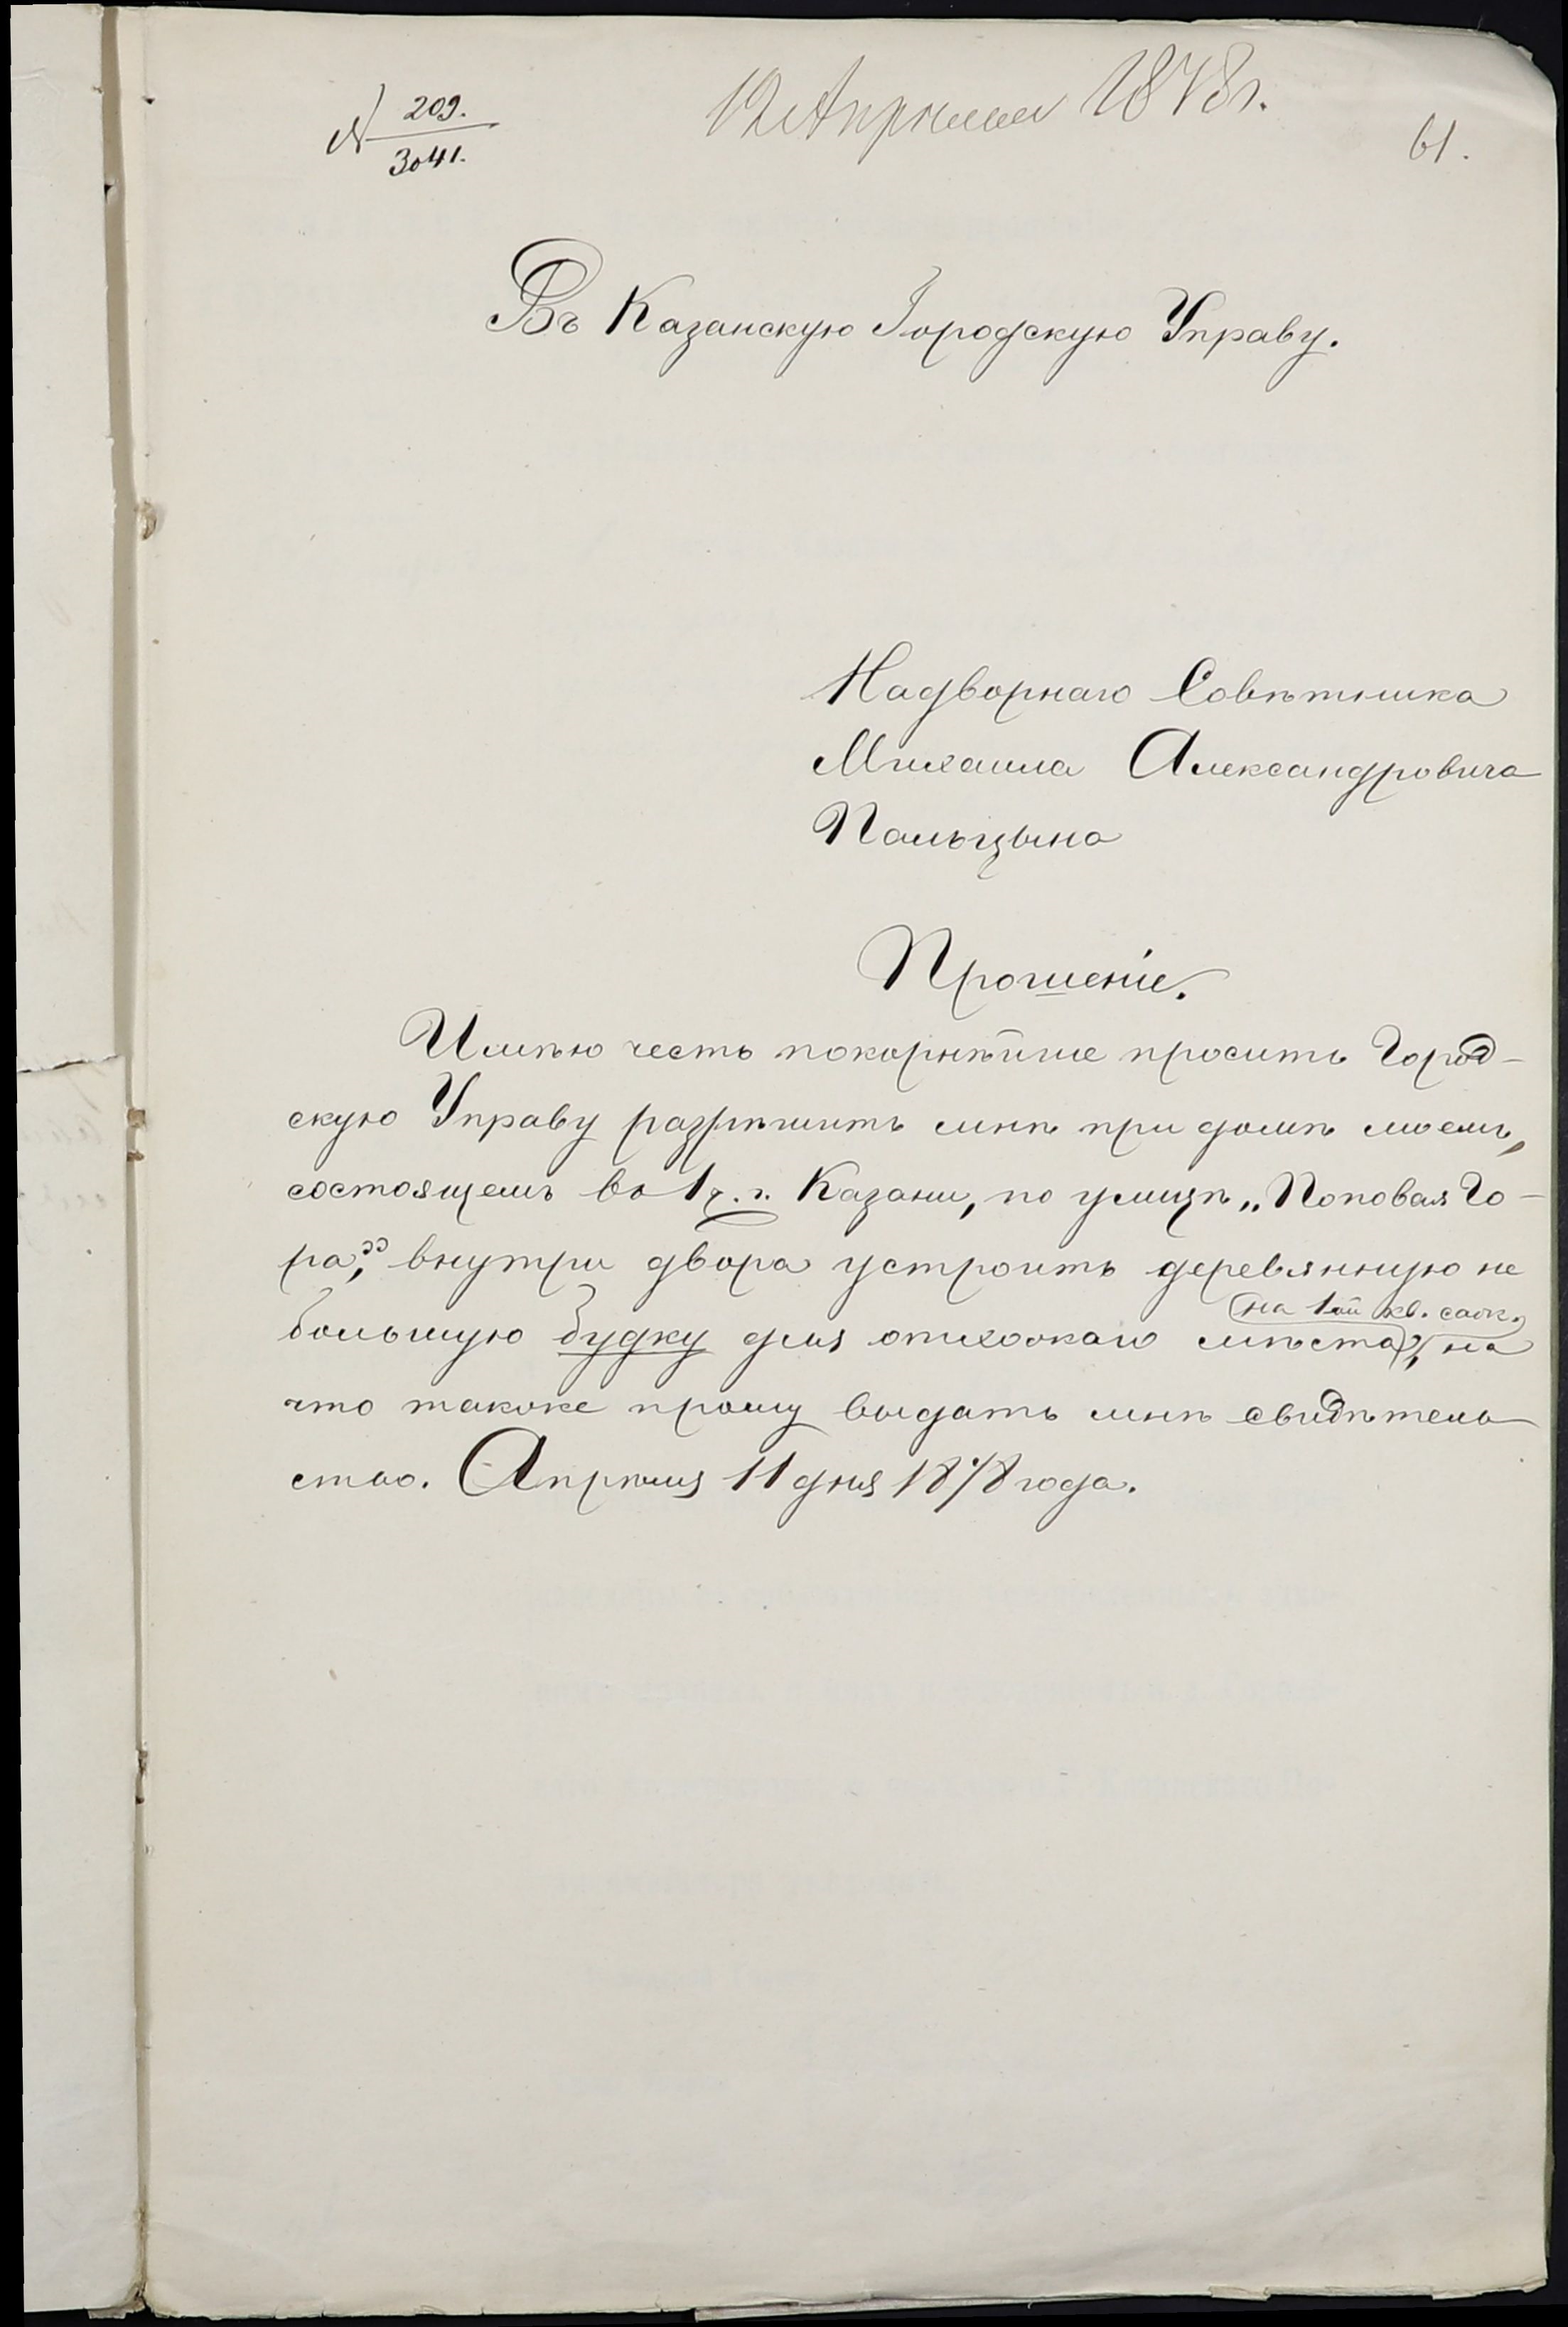 № 209.
3041.
12 Апреля 1878 г.
61.
Въ Казанскую Городскую Управу.
Надворнаго Совѣтника
Михаила Александровича
Пальцына
Прошеніе.
Имѣю честь покорнѣйше просить Город-
скую Управу разрѣшить мнѣ при домѣ моемъ,
состоящемъ во 1 ч. г. Казани, по улицѣ „Поповая Го-
ра”, внутри двора устроить деревянную не
на 1ой кв. саж.
большую будку для отхожаго мѣста, на
что также прошу выдать мнѣ свидѣтель
ство. Апрѣля 11 дня 1878 года.